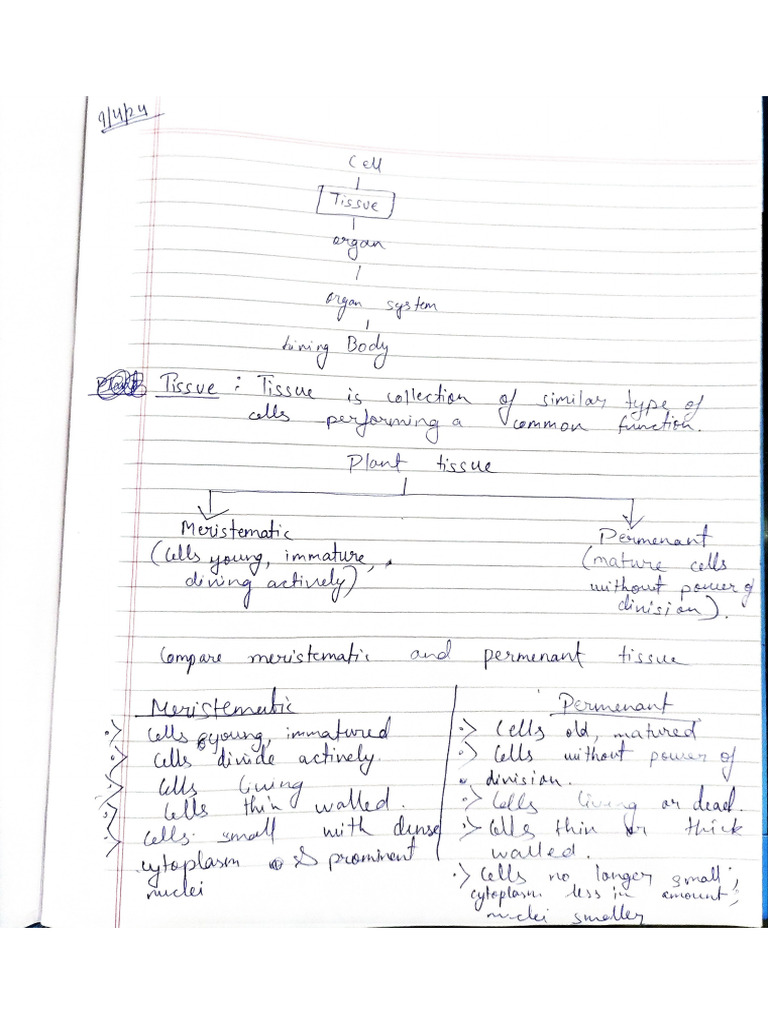 9/4/24
Cell
Tissue
organ
organ system
Living Body
Tissue : Tissue is collection of similar type of
cells performing a common function.
Plant tissue
Meristematic
(Cells young, immature,
diving actively)
Permenant
(mature cells
without power of
division).
Compare meristematic and permenant tissue
Meristematic
Cells young, immatured
Cells divide actively.
Cells living
Cells thin walled.
Cells small with dense
cytoplasm & prominent
nuclei
Permenant
Cells old, matured
Cells without power of
division.
Cells living or dead.
Cells thin or thick
walled.
Cells no longer small;
cytoplasm less in amount;
nuclei smaller